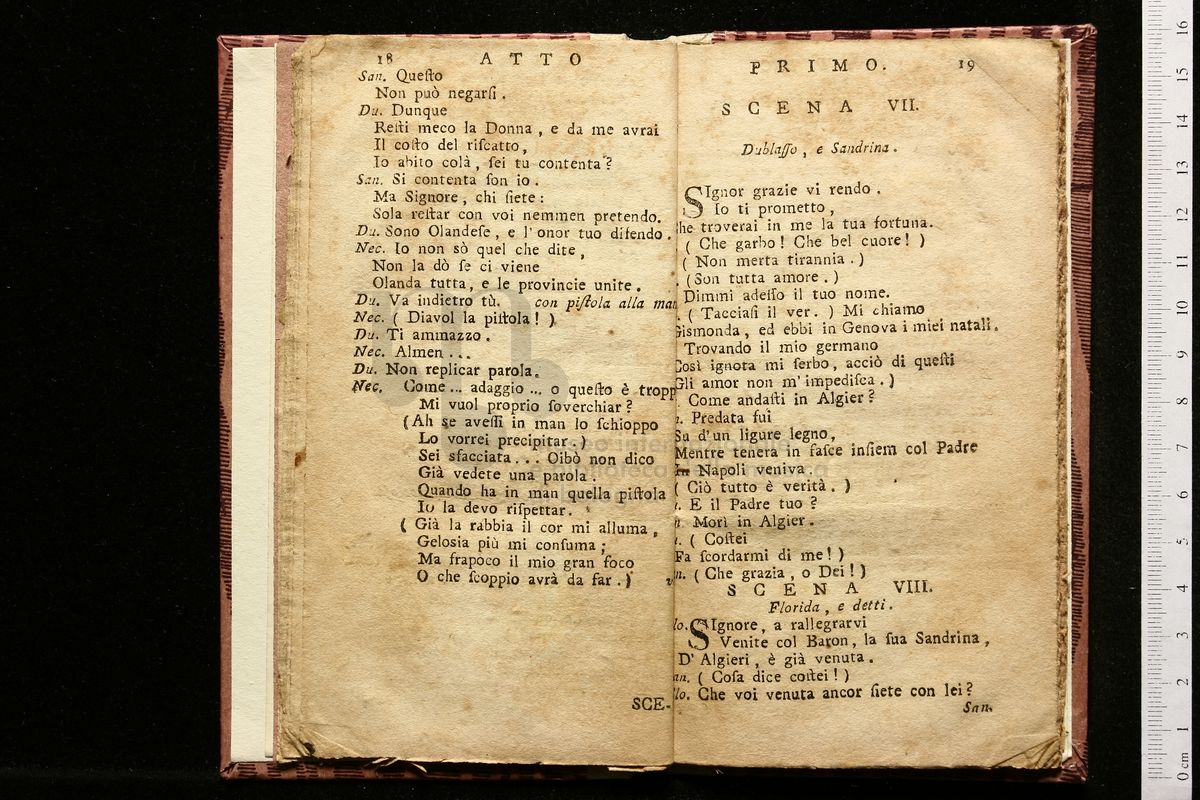 18 ATTO
San. Queſto
Non può negarſi.
Du. Dunque
Reſti meco la Donna, e da me avrai
Il coſto del riſcatto,
Io abito colà, ſei tu contenta?
San. Si contenta ſon io.
Ma Signore, chi ſiete:
Sola reſtar con voi nemmen pretendo.
Du. Sono Olandeſe, e l'onor tuo difendo.
Nec. Io non sò quel che dite,
Non la dò ſe ci viene
Olanda tutta, e le provincie unite.
Du. Va indietro tù. con piſtola alla
Nec. ( Diavol la piſtola! )
Du. Ti ammazzo.
Nec. Almen ...
Du. Non replicar parola.
Nec. Come ... adaggio ... o queſto è tropp
Mi vuol proprio ſoverchiar?
(Ah se aveſſi in man lo ſchioppo
Lo vorrei precipitar.)
Sei sfacciata... Oibò non dico
Già vedete una parola.
Quando ha in man quella piſtola
Io la devo riſpettar.
( Già la rabbia il cor mi alluma,
Gelosia più mi conſuma;
Ma frapoco il mio gran foco
O che ſcoppio avrà da far.)
SCE-
PRIMO. 19
SCENA VII.
Dublaſſo, e Sandrina.
SIgnor grazie vi rendo.
Io ti prometto,
he troverai in me la tua fortuna.
( Che garbo! Che bel cuore! )
( Non merta tirannia.)
. (Son tutta amore.)
Dimmi adeſſo il tuo nome.
. ( Tacciaſi il ver. ) Mi chiamo
Gismonda, ed ebbi in Genova i miei natali.
Trovando il mio germano
Così ignota mi ſerbo, acciò di queſti
Gli amor non m'impediſca.)
Come andaſti in Algier?
. Predata fui
Su d'un ligure legno,
Mentre tenera in faſce inſiem col Padre
In Napoli veniva.
( Ciò tutto è verità. )
. E il Padre tuo?
. Morì in Algier.
. ( Coſtei
Fa ſcordarmi di me!)
n. ( Che grazia, o Dei!)
SCENA VIII.
Florida, e detti.
lo. SIgnore, a rallegrarvi
Venite col Baron, la ſua Sandrina,
D'Algieri, è già venuta.
an. ( Coſa dice coſtei!)
lo. Che voi venuta ancor ſiete con lei?
San.
16
15
14
13
12
11
10
9
8
7
6
5
4
3
2
1
0 cm